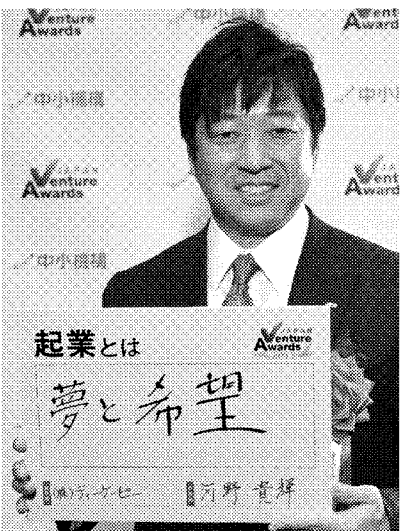 Venture Awards
中小機構
Venture Awards
中小機構
中小機
Venture Awards
Venture Awards
中小機構
起業とは
Venture Awards
夢と希望
(株)ティーケーピー
河野 貴輝